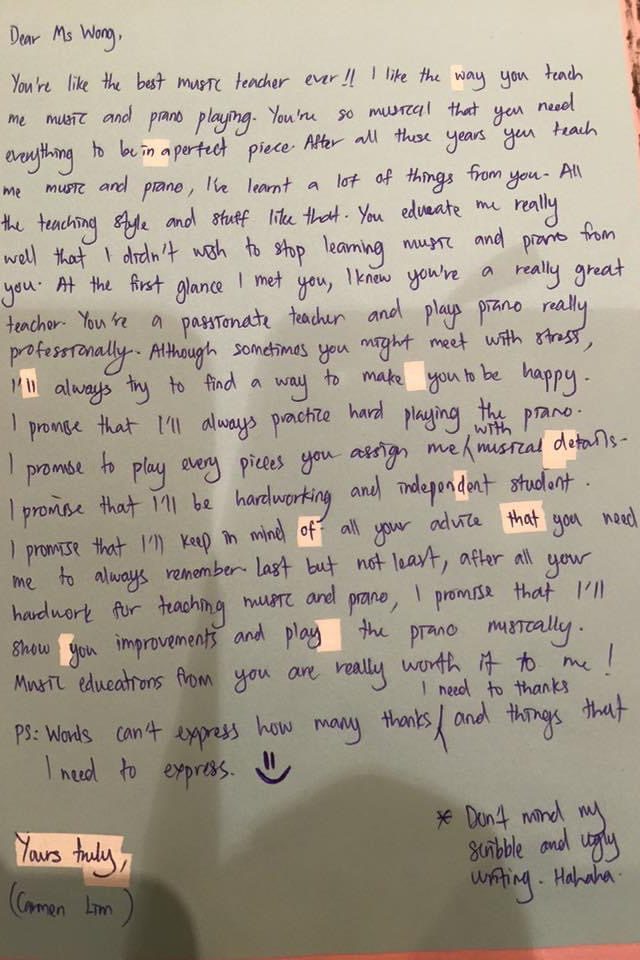 Dear Ms Wong,
You're like the best music teacher ever!! I like the way you teach
me music and piano playing. You're so musical that you need
everything to be in a perfect piece. After all these years you teach
me music and piano, I've learnt a lot of things from you. All
the teaching style and stuff like that. You educate me really
well that I didn't wish to stop learning music and piano from
you. At the first glance I met you, I knew you're a really great
teacher. You're a passionate teacher and plays piano really
professionally. Although sometimes you might meet with stress,
I'll always try to find a way to make you to be happy.
I promise that I'll always practice hard playing the piano.
I promise to play every pieces you assign me with musical details.
I promise that I'll be hardworking and independent student.
I promise that I'll keep in mind of all your advice that you need
me to always remember. Last but not least, after all your
hardwork for teaching music and piano, I promise that I'll
show you improvements and play the piano musically.
Music educations from you are really worth it to me!
PS: Words can't express how many thanks I need to thanks and things that
I need to express.
* Don't mind my
scribble and ugly
writing. Hahaha.
Yours truly,
(Carmen Lim)